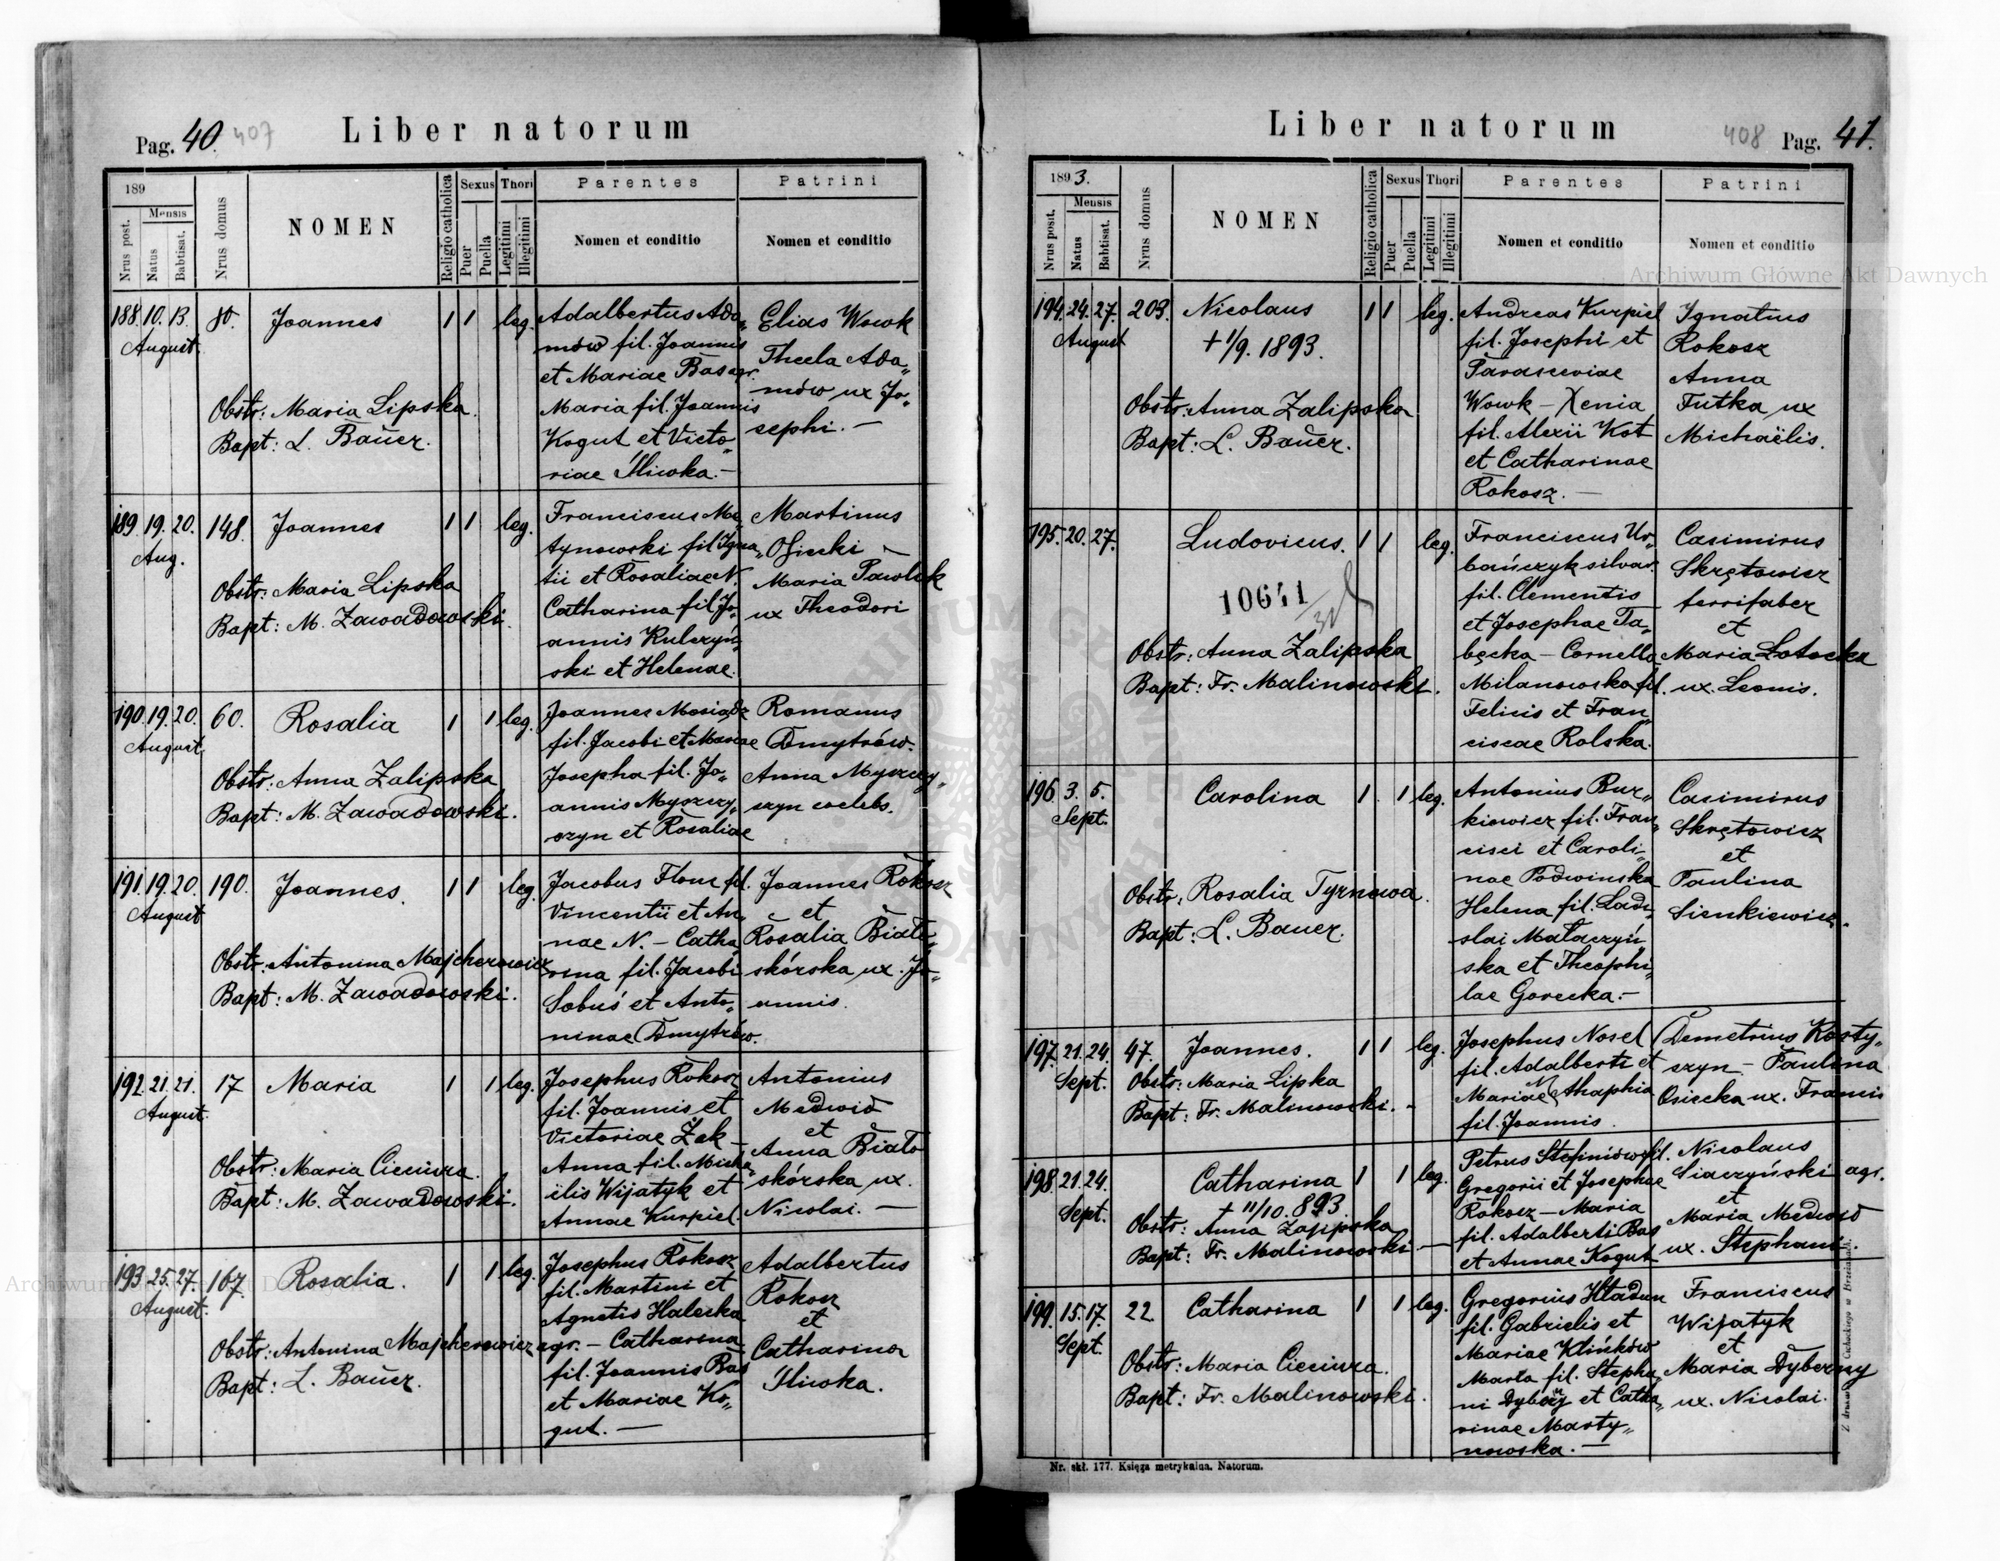 Pag. 40. 407
Liber natorum
189
Nrus post.
Mensis
Natus
Babtisat.
Nrus domus
NOMEN
Religio catholica
Sexus
Puer
Puella
Thori
Legitimi
Illegitimi
Parentes
Nomen et conditio
Patrini
Nomen et conditio
188. 10. 13. 80. Joannes 1 1 leg.
August.
Obstr: Maria Lipska.
Bapt: L. Bauer.
Adalbertus Ada„
mów fil. Joannis
et Mariae Bas agr.
Maria fil. Joannis
Kogut et Victo„
riae Sliwka.—
Elias Wowk
Thecla Ada„
mów ux Jo„
sephi.—
189. 19. 20. 148. Joannes 1 1 leg.
Aug.
Obstr: Maria Lipska
Bapt: M. Zawadowski.
Franciscus Ma„
tynowski fil Igna„
tii et Rosaliae N.
Catharina fil. Jo„
annis Kulczyń„
ski et Helenae.
Martinus
Osiecki —
Maria Pawluk
ux Theodori
190. 19. 20. 60. Rosalia 1 1 leg.
August.
Obstr: Anna Zalipska
Bapt: M. Zawadowski.
Joannes Mosiądz
fil. Jacobi et Mariae
Josepha fil. Jo„
annis Myszczy„
szyn et Rosaliae
Romanus
Dmytrów.
Anna Myszczy„
szyn coelebs.
191. 19. 20. 190. Joannes. 1 1 leg.
August
Obstr: Antonina Majcherowicz
Bapt: M. Zawadowski.
Jacobus Flont fil.
Vincentii et An„
nae N. – Catha„
rina fil. Jacobi
Sobuś et Anto„
ninae Dmytrów.
Joannes Rokosz
et
Rosalia Biało„
skórska ux. Jo„
annis.
192. 21. 21. 17 Maria 1 1 leg.
August.
Obstr: Maria Cieciura.
Bapt: M. Zawadowski.
Josephus Rokosz
fil. Joannis et
Victoriae Żak —
Anna fil. Micha„
ëlis Wijatyk et
Annae Kurpiel.
Antonius
Medwid
et
Anna Biało
skórska ux.
Nicolai. —
193. 25. 27. 167. Rosalia. 1 1 leg.
August.
Obstr: Antonina Majcherowicz
Bapt: L. Bauer.
Josephus Rokosz
fil. Martini et
Agnetis Halecka
agr. – Catharina
fil. Joannis Bas
et Mariae Ko„
gut. —
Adalbertus
Rokosz
et
Catharina
Sliwka.
Liber natorum
408 Pag. 41.
1893.
Nrus posit.
Mensis
Natus
Babtisat.
Nrus domus
NOMEN
Religio catholica
Sexus
Puer
Puella
Thori
Legitimi
Illegitimi
Parentes
Nomen et conditio
Patrini
Nomen et conditio
Archiwum Główne Akt Dawnych
194. 24. 27. 203. Nicolaus 1 1 leg.
August
+ 1/9. 1893.
Obstr: Anna Zalipska
Bapt: L. Bauer.
Andreas Kurpiel
fil. Josephi et
Parasceviae
Wowk – Xenia
fil. Alexii Kot
et Catharinae
Rokosz. —
Ignatius
Rokosz
Anna
Futka ux
Michaëlis.
195. 20. 27. Ludovicus. 1 1 leg.
10641
Obstr: Anna Zalipska
Bapt: Fr. Malinowski.
Franciscus Ur„
bańczyk silvar.
fil. Clementis
et Josephae Ta„
bęcka – Cornella
Milanowska fil.
Felicis et Fran„
ciscae Rolska.
Casimirus
Skrętowicz
ferrifaber
et
Maria Lotocka
ux. Leonis.
196. 3. 5. Carolina 1 1 leg.
Sept.
Obstr: Rosalia Tyrnowa.
Bapt: L. Bauer.
Antonius Bur„
kiewicz fil. Fran„
cisci et Caroli„
nae Podwinska
Helena fil. Ladi„
slai Małaczyń„
ska et Theophi„
lae Gorecka.–
Casimirus
Skrętowicz
et
Paulina
Sienkiewicz.
197. 21. 24. 47. Joannes. 1 1 leg.
Sept.
Obstr: Maria Lipka
Bapt: Fr. Malinowski. –
Josephus Nosel
fil. Adalberti et
Mariae Athaphia
fil. Joannis.
Demetrius Kosty„
szyn – Paulina
Osiecka ux. Francis
198. 21. 24. Catharina 1 1 leg.
Sept.
+ 11/10. 893.
Obstr: Anna Zapipska
Bapt: Fr. Malinowski. —
Petrus Stefiniów fil.
Gregorii et Josephae
Rokosz – Maria
fil. Adalberti Bas
et Annae Kogut
Nicolaus
Siaczyński agr.
et
Maria Medwid
ux. Stephani.
199. 15. 17. 22. Catharina 1 1 leg.
Sept.
Obstr: Maria Cieciura.
Bapt: Fr. Malinowski.
Gregorius Hładun
fil. Gabrielis et
Mariae Klińków
Marta fil. Stepha„
ni Dyberny et Catha„
rinae Marty„
nowska. —
Franciscus
Wijatyk
et
Maria Dyberny
ux. Nicolai.
Nr. skł. 177. Księga metrykalna. Natorum.